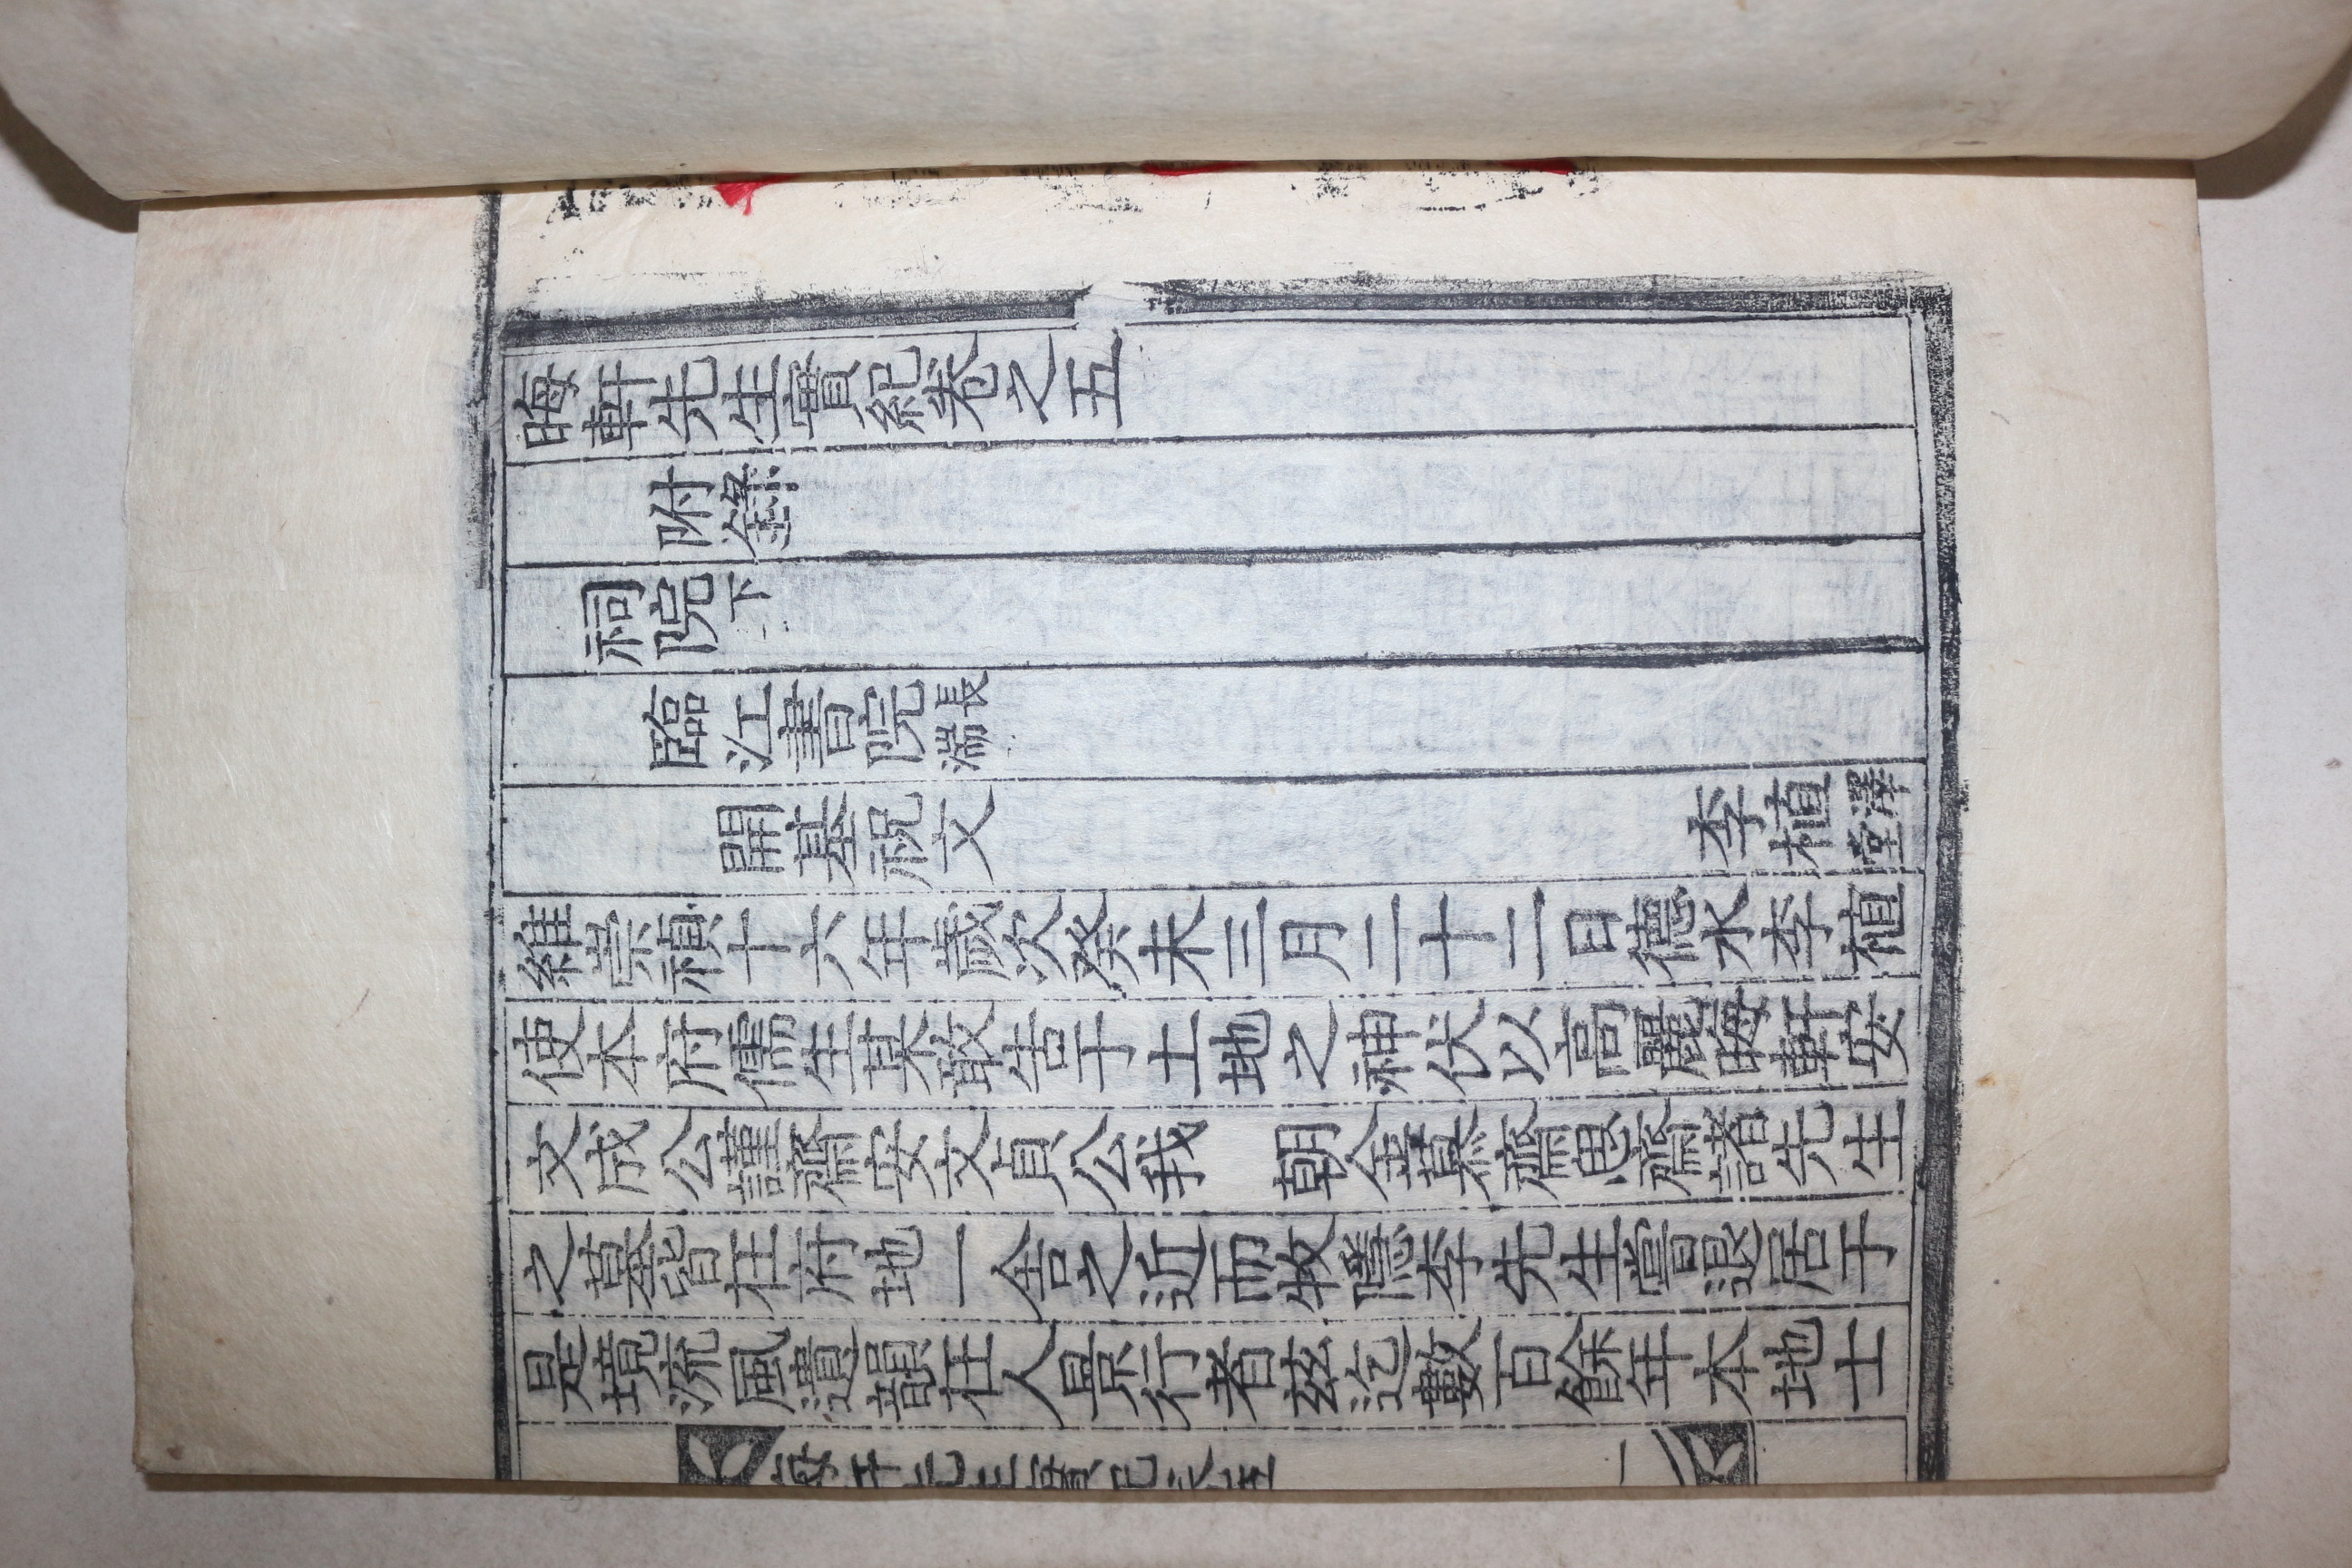 晦軒先生實紀卷之五
附錄
祠院下
臨江書院長湍
開基祝文 李植澤堂
維崇禎十六年歲次癸未三月二十二日德水李植
使本府儒生某敢告于土地之神伏以高麗晦軒安
文成公謹齋安文貞公我 朝金慕齋思齋諸先生
之墓皆在府地一舍之近而牧隱李先生嘗退居于
是境流風遺韻在人景行者玆迄數百餘年本地士
晦軒先生實紀卷五
一